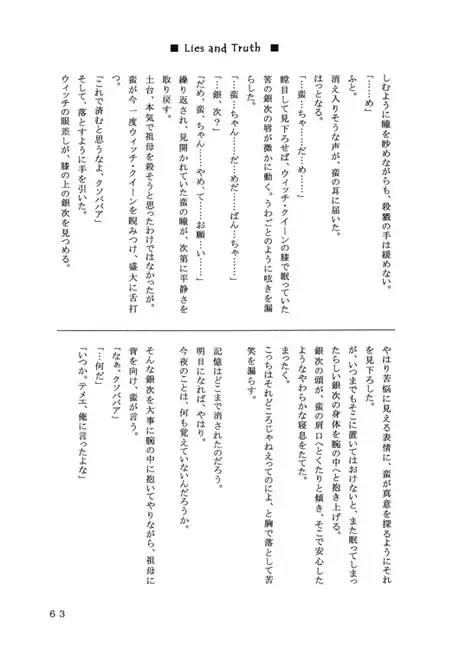 ■ Lies and Truth ■
しむように瞳を眇めながらも、殺戮の手は緩めない。
「……め」
ふと。
消え入りそうな声が、蛮の耳に届いた。
はっとなる。
「…蛮…ちゃ……だ…め……」
瞠目して見下ろせば、ウィッチ・クイーンの膝で眠っていた
筈の銀次の唇が微かに動く。うわごとのように呟きを漏
らした。
「…蛮…ちゃん……だ…めだ……ばん…ちゃ……」
「…銀、次？」
「だめ、蛮、ちゃん……やめ、て……お願…い……」
繰り返され、見開かれていた蛮の瞳が、次第に平静さを
取り戻す。
土台、本気で祖母を殺そうと思ったわけではなかったが。
蛮が今一度ウィッチ・クイーンを睨みつけ、盛大に舌打
つ。
「これで済むと思うなよ、クソババア」
そして、落とすように手を引いた。
ウィッチの眼差しが、膝の上の銀次を見つめる。
やはり苦悩に見える表情に、蛮が真意を探るようにそれ
を見下ろした。
が、いつまでもそこに置いてはおけないと、また眠ってしまっ
たらしい銀次の身体を腕の中へと抱き上げる。
銀次の頭が、蛮の肩口へとくたりと傾き、そこで安心した
ようなやわらかな寝息をたてた。
まったく。
こっちはそれどころじゃねえってのによ、と胸で落として苦
笑を漏らす。
記憶はどこまで消されたのだろう。
明日になれば、やはり。
今夜のことは、何も覚えていないんだろうか。
そんな銀次を大事に腕の中に抱いてやりながら、祖母に
背を向け、蛮が言う。
「なぁ、クソババア」
「…何だ」
「いつか。テメエ、俺に言ったよな」
６３